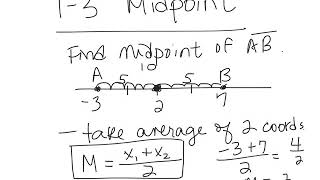 1-3 Midpoint
Find midpoint of AB.
10
A 5 5 B
-3 2 7
- take average of 2 coords
M = x₁ + x₂ / 2
-3 + 7 / 2 = 4 / 2